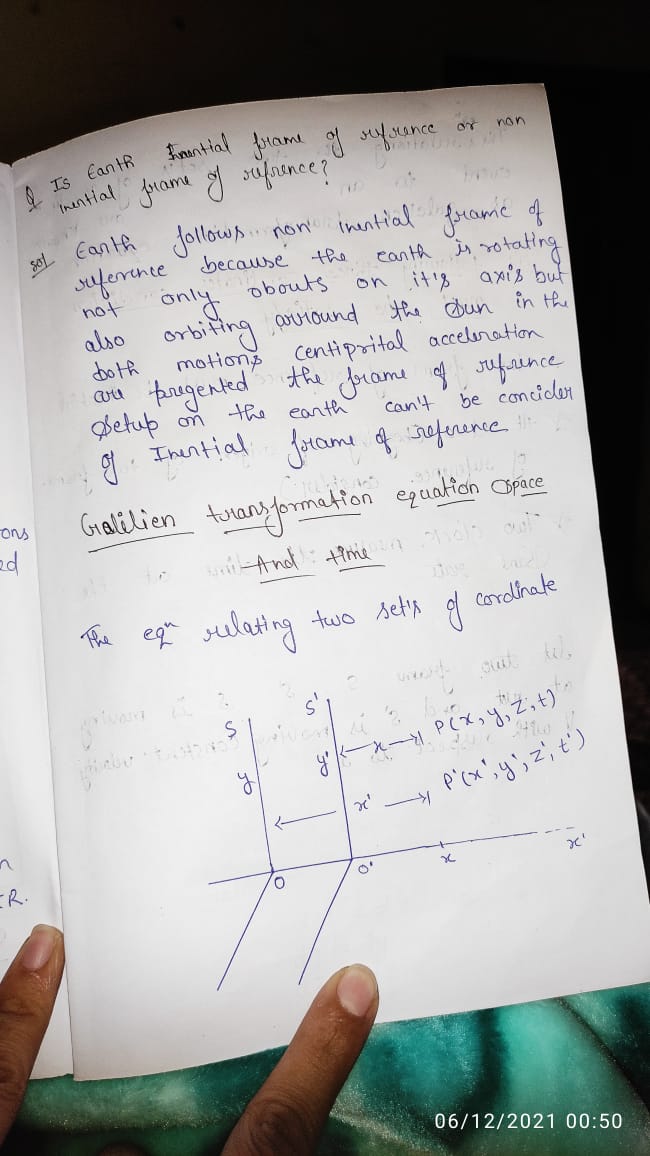 Q Is Earth Inential frame of refrence or non
inential frame of refrence?
sol Earth follows non inential frame of
reference because the earth is rotating
not only obouts on it's axis but
also orbiting arround the Sun in the
both motions centiprital acceleration
are pregented the frame of refrence
Setup on the earth can't be concider
of Inential frame of reference
Galilien transformation equation space
And time
The eqn relating two set's of cordinate
S S'
y y' x P(x, y, z, t)
x' P'(x', y', z', t')
O O' x x'
ons
ed
n
ER.
06/12/2021 00:50